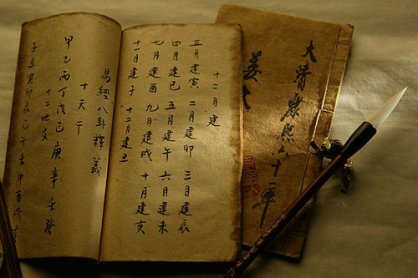 十二月建
三月建寅 二月建卯 三月建辰
四月建巳 五月建午 六月建未
七月建酉 九月建戌 十月建亥
十一月建子 十二月建丑
易經八卦釋義
十天干
甲乙丙丁戊己庚辛壬癸
十二地支
子丑寅卯辰巳午未申酉戌亥
大清康熙六十年
姜